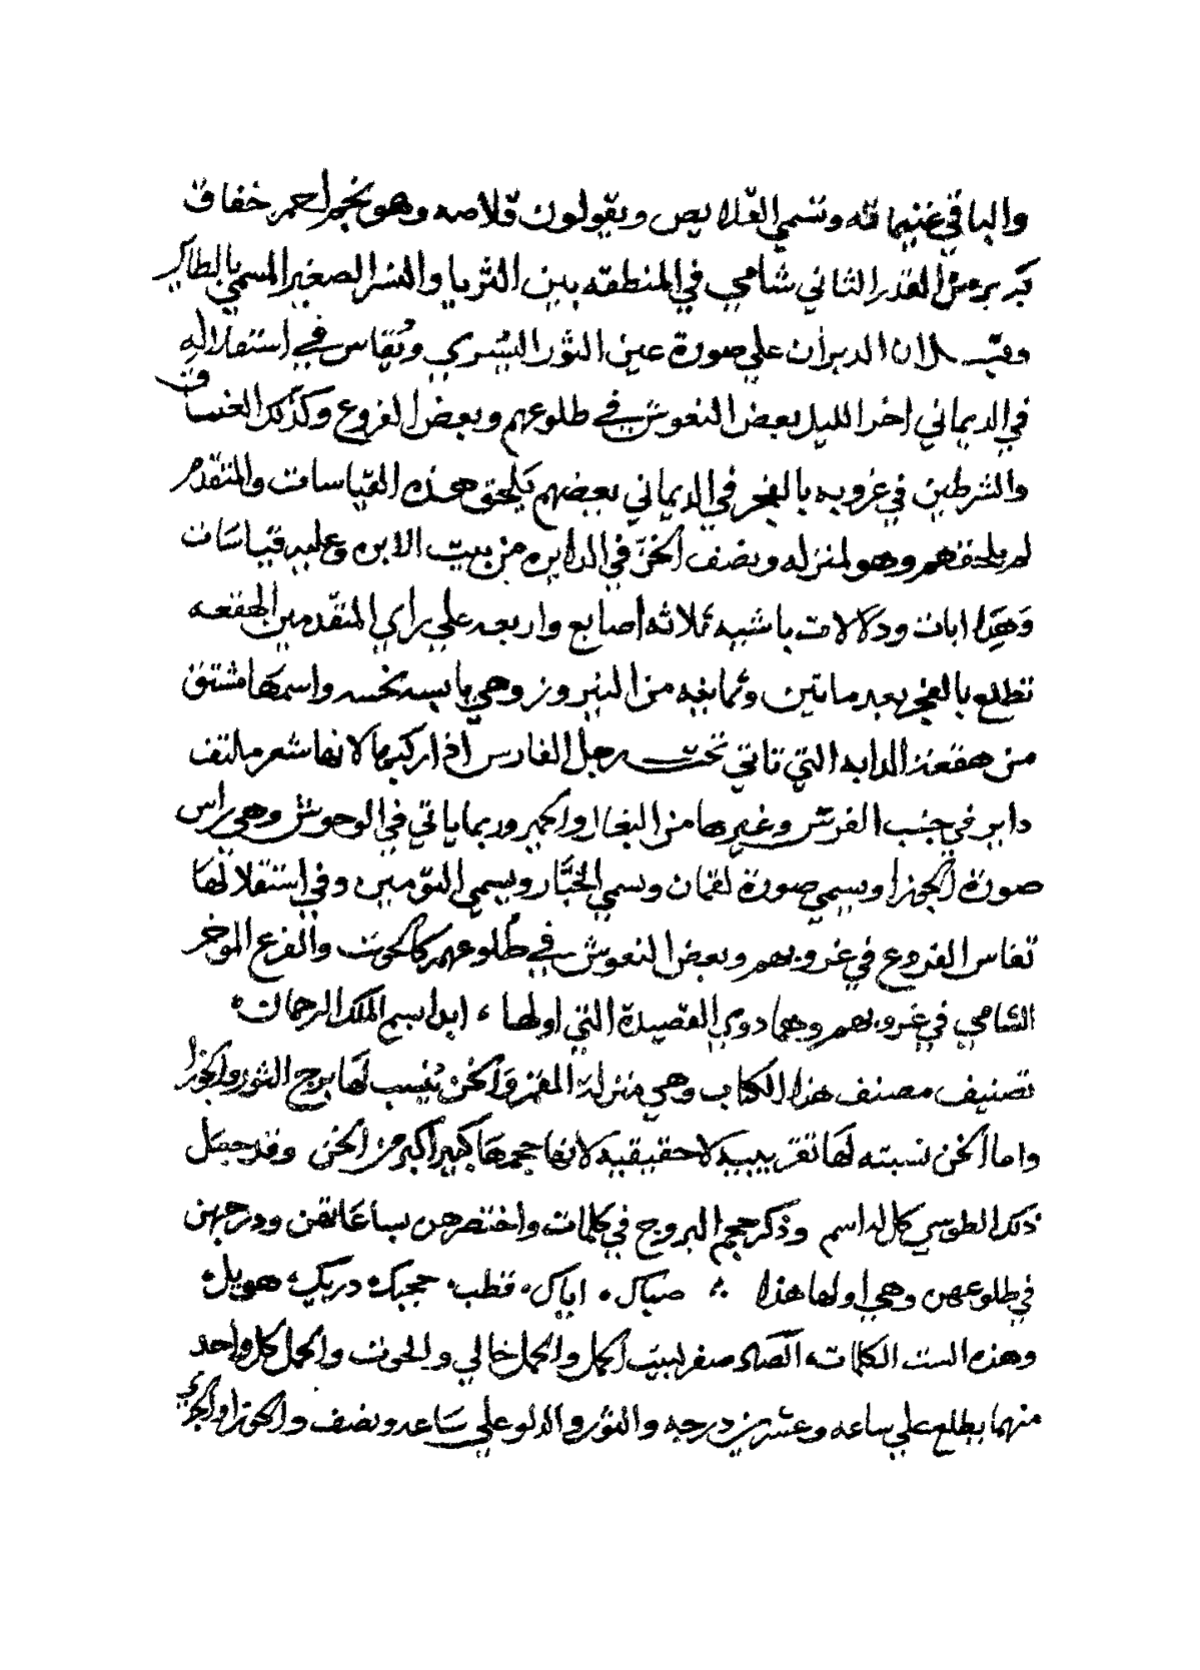 والباقي غنيماته وتسمي القلايص ويقولون قلاصه وهو نجم احمر خفاق
كبير من القدر الثاني شامي في المنطقه بين الثريا والنسر الصغير المسمي بالطاير
وقيل ان الدبران علي صورة عين الثور اليسري وتقاس في استقلاله
في الديماني اخر الليل بعض النعوش في طلوعهم وبعض الفروع وكذلك العساق
والشرطين في غروبه بالفجر في الديماني بعضهم يلحق هذه القياسات والمتقدم
لم يلحقهم وهو لمنزله ونصف الخن في الدايره من بيت الابره وعليه قياسات
وهذا ابات ودلالات باشيه ثلاثه اصابع واربعه علي راي المتقدمين الهقعه
تطلع بالفجر بعد ماتين وثمانيه من النيروز وهي يابسه نحسه واسمها مشتق
من هقعة الدابه التي تاتي تحت رجل الفارس اذا ركبها لانها شعر ملتف
داير في جنب الفرس وغيرها من البغال والحمير وربما ياتي في الوحوش وهي راس
صورة الجوزا ويسمي صورة لقمان ويسمي الجبار ويسمي التومين وفي استقلالها
تقاس الفروع في غروبهم وبعض النعوش في طلوعهم كالحوت والفرع الموخر
الشامي في غروبهم وهما دوي القصيدة التي اولها ، ابدا باسم الملك الرحمان
تصنيف مصنف هذا الكتاب وهي منزلة القمر والخن ينسب لها برج الثور والجوزا
واما الخن نسبته لها تقريبيه لا حقيقيه لانها حجمها كبير اكبر من الخن وقد جعل
ذلك الطوسي كل له اسم وذكر حجم البروج في كلمات واختصرهن بساعاتهن ودرجهن
في طلوعهن وهي اولها هذا ∴ صباك . اياك . قطب . حجبك . دريك . هويل .
وهذه الست الكلمات الصاد صفر لبيت الحمل والحمل خالي والحوت والحمل كل واحد
منهما يطلع علي ساعه وعشرين درجه والثور والدلو علي ساعه ونصف والجوزا والجدي